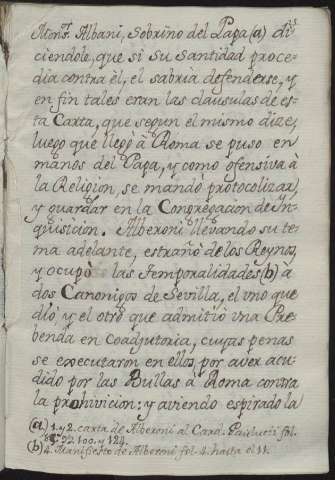 Mons.r Albani, Sobrino del Papa (a) di
ciendole, que si su Santidad proce
dia contra èl, el sabria defenderse, y
en fin tales eran las clausulas de es
ta Carta, que segun el mismo dize,
luego que llegò à Roma se puso en
manos del Papa, y como ofensiva à
la Religion, se mandò protocolizar,
y guardar en la Congregacion de In
quisicion. Alberoni llevando su te
ma adelante, estrañò de los Reynos,
y ocupò las temporalidades (b) à
dos Canonigos de Sevilla, el vno que
diò y el otro que admitiò vna Pre
benda en Coadjutoria, cuyas penas
se executaron en ellos por aver acu
dido por las Bullas à Roma contra
la prohivicion: y aviendo espirado la
(a) 1. y 2. carta de Alberoni al Card. Paulucci fol.
92. 100. y 124.
(b) 4. Manifiesto de Alberoni fol. 4. hasta el 11.